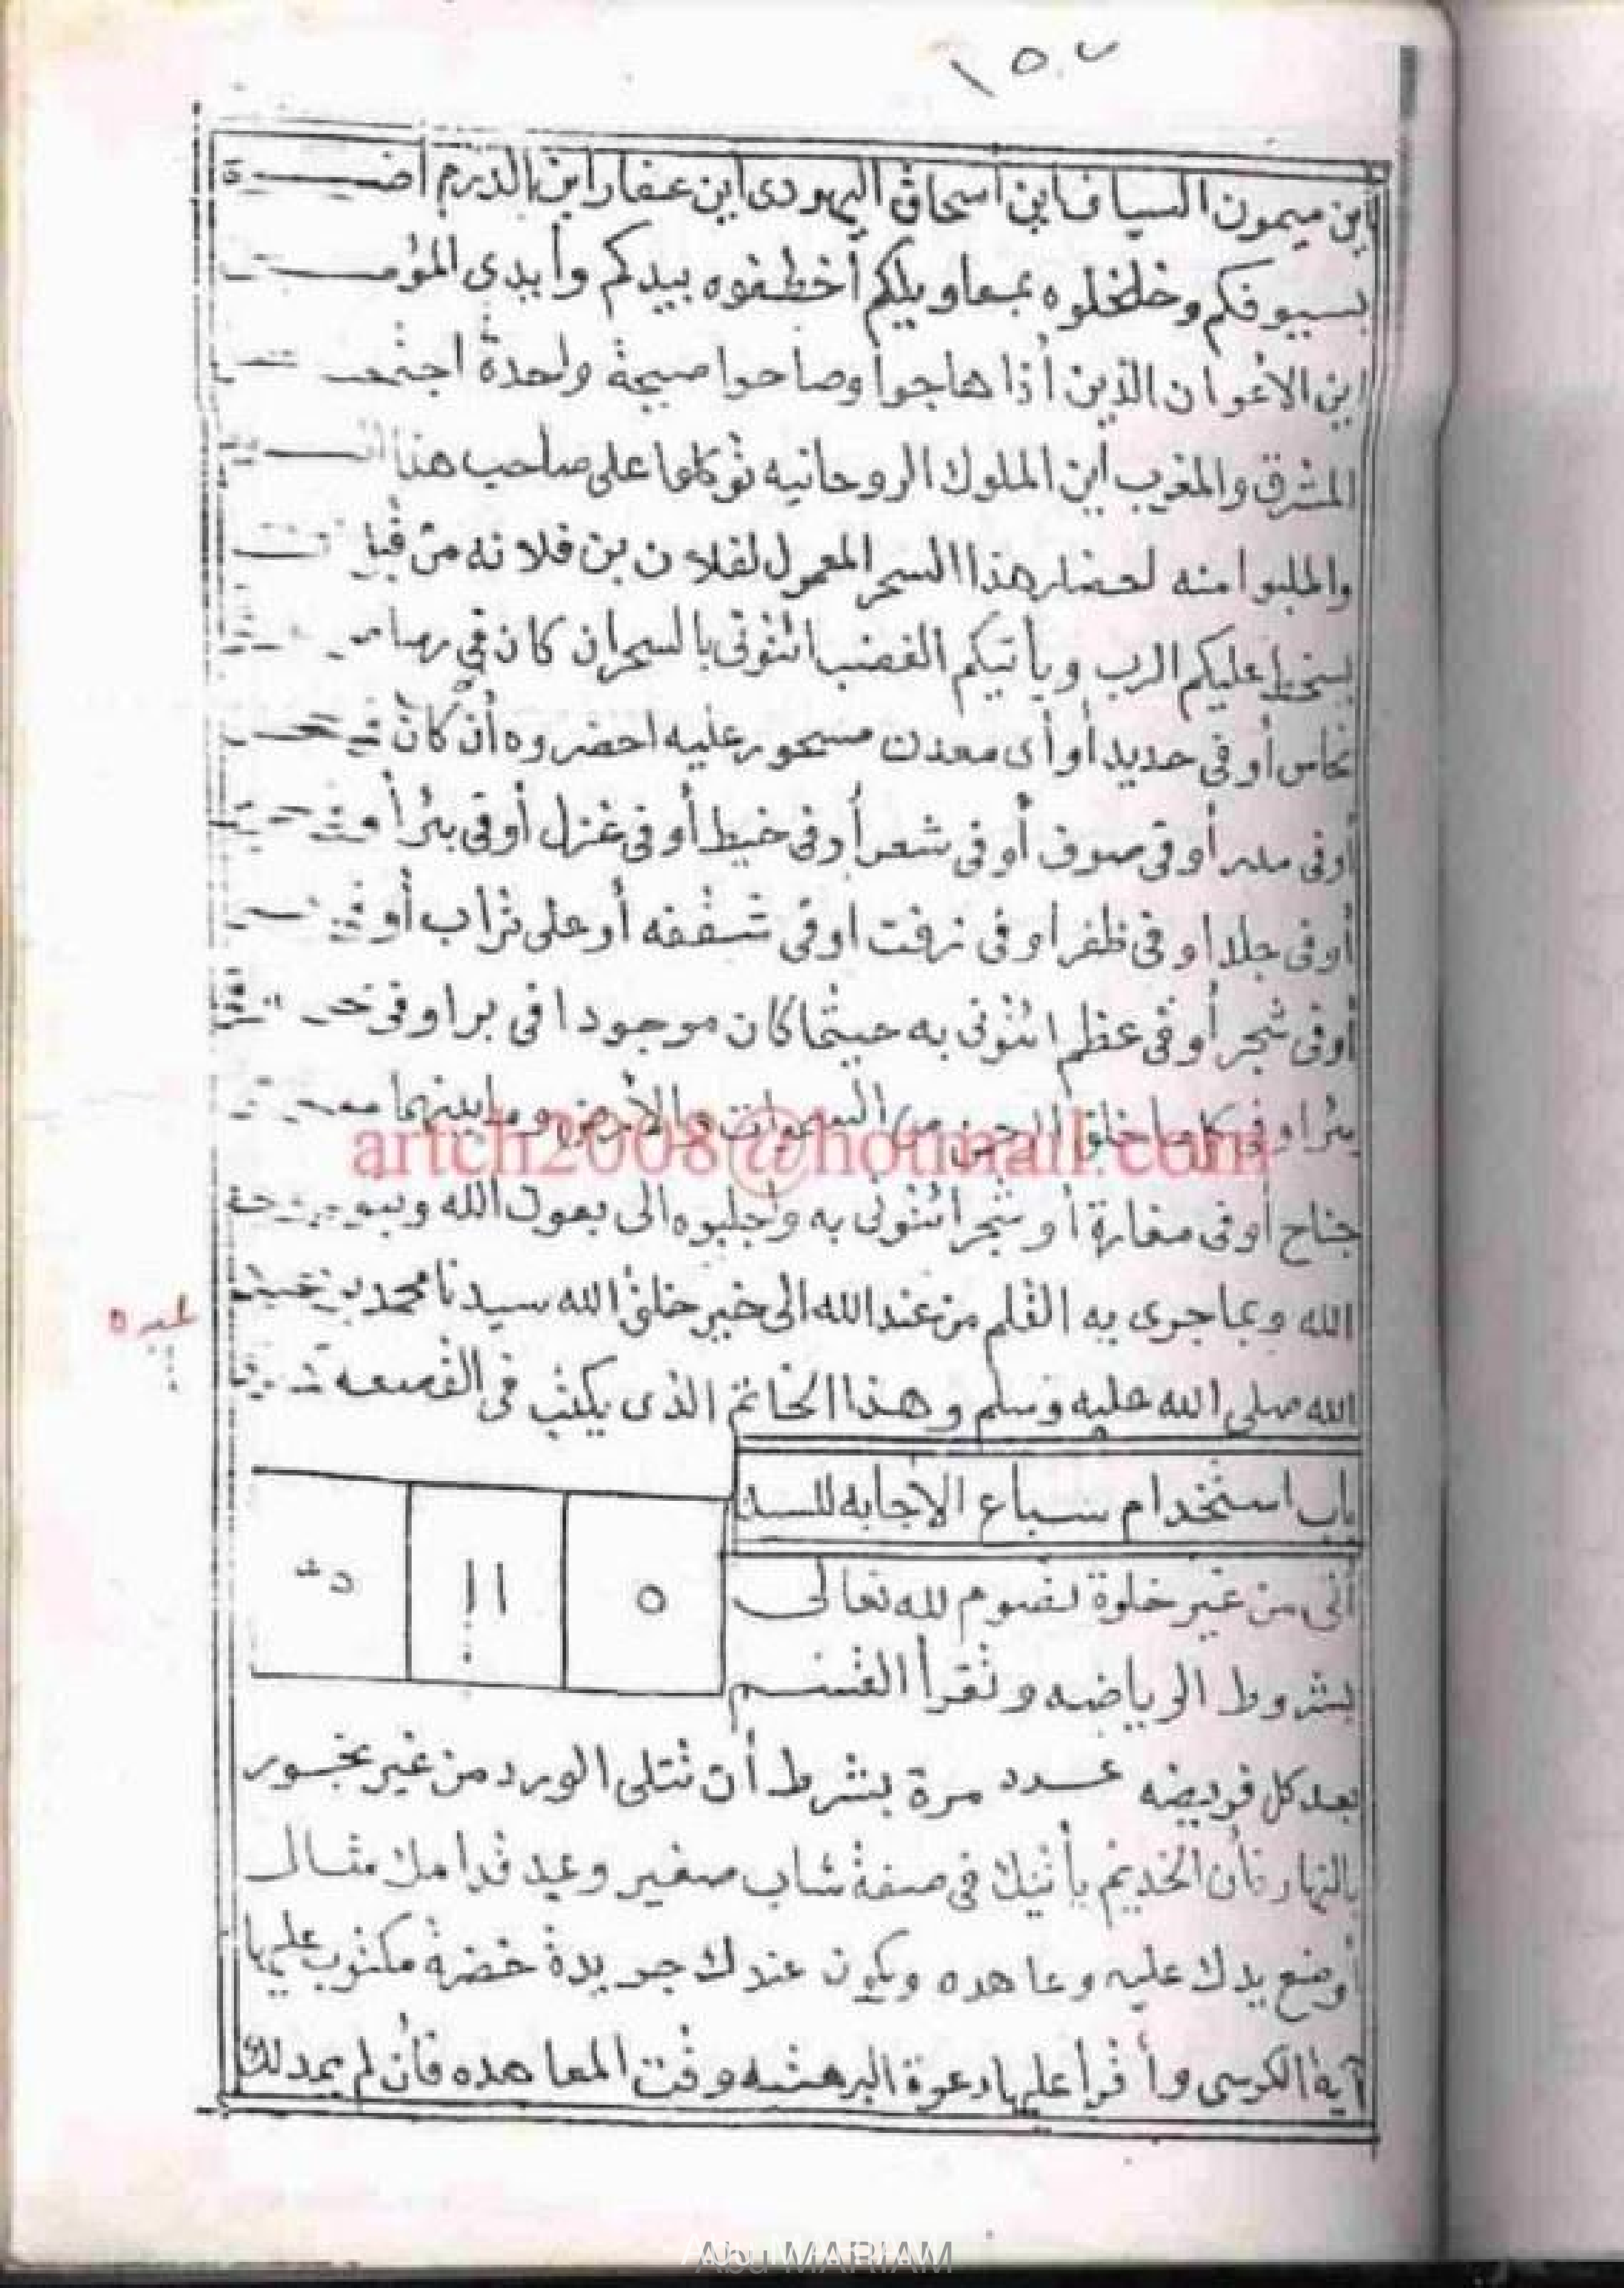 ١٥٧
ابن ميمون السياف أين اسحاق اليهودى اين عفار ابن الدرم
بسيوفكم وخلخلوه بمعاويلكم أخطفوه بيدكم وأيدى
اين الأعوان الذين أذا هاجوا وصاحوا صيحة واحدة
المشرق والمغرب أين الملوك الروحانيه توكلوا على صاحب هذا
واطلبوا منه لحضار هذا السحر المعمول لفلان بن فلانه من قبل
يسخط عليكم الرب ويأتيكم الغضب ائتونى بالسحر ان كان فى
نحاس أو فى حديد أو أى معدن مسحور عليه احضروه أن كان
أو فى مدر أو فى صوف أو فى شعر أو فى خيط أو فى غزل أو فى بئر
أو فى جلد او فى ظفر او فى زفت او فى شقفه أو على تراب
أو فى شجر أو فى عظم ائتونى به حيثما كان موجودا فى بر او فى
بئر او فى كل ما خلق الرحمن من السموات والأرض وما بينهما
جناح أو فى مغارة أو شجر ائتونى به واجلبوه الى بعون الله
الله وبما جرى به القلم من عند الله الى خير خلق الله سيدنا محمد بن
الله صلى الله عليه وسلم وهذا الخاتم الذى يكتب فى القصعه
باب استخدام سباع الإجابه للسد
أتى من غير خلوة تصوم لله تعالى
٥ ١١
بشروط الرياضه وتقرأ القسم
بعد كل فريضه عدد مرة بشرط أن تتلى الورد من غير بخور
بالنهار فأن الخديم يأتيك فى صفة شاب صغير وعيد قدامك مثال
أوضع يدك عليه وعاهده ويكون عندك جريدة خضرة مكتوب عليها
آية الكرسى وأقرأ عليها دعوة البرهتيه وقت المعاهده فأن لم يمد لك
artch2008@hotmail.com
Abu MARIAM